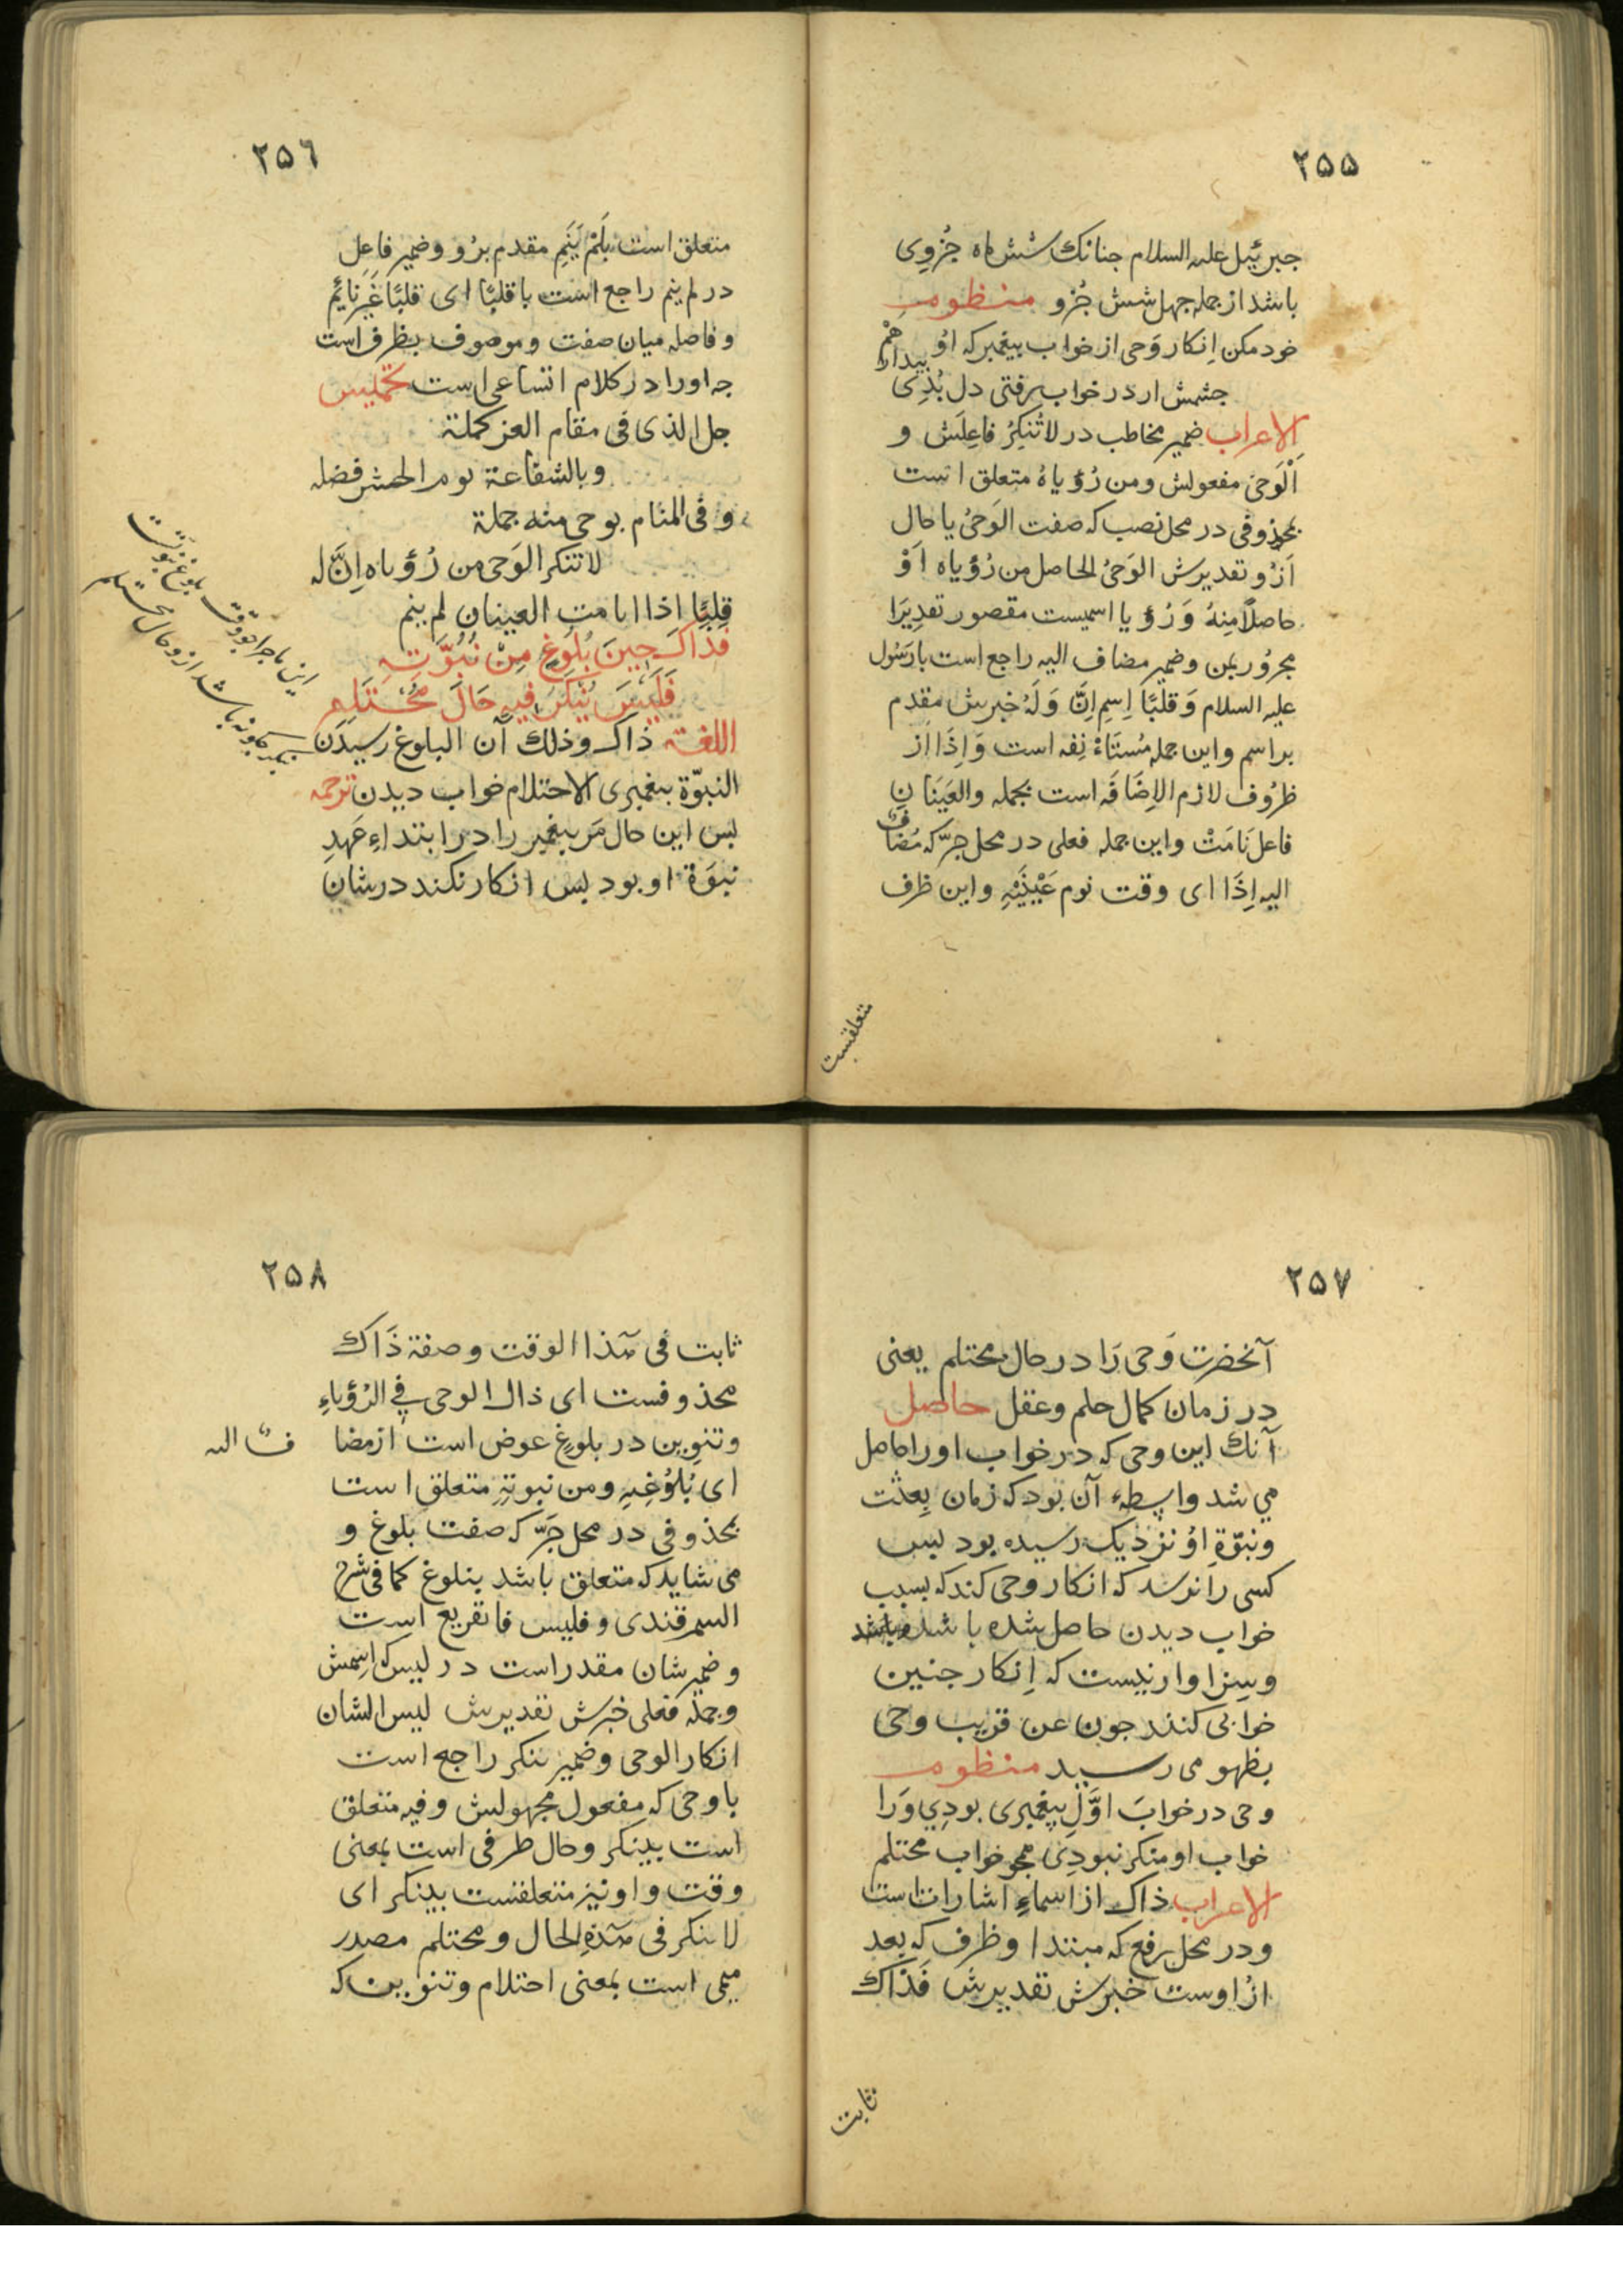 ۲۵۵
جبرئیل علیه السلام جنانک شش ماه جُزوِی
باشد از جمله جهل شش جُزو منظومه
خود مکن اِنکار وَحی از خواب بیغمبر که اوُ
بیدار هم
جشمش ار در خواب رفتی دل بُدِی
الاعراب ضمیر مخاطب در لاتُنکِرُ فاعِلَش و
اَلْوَحیَ مفعولش ومن رُؤیاهُ متعلق است
بمحذوفی در محل نصب که صفت الوَحیُ یا حال
اَزُو تقدیرش الوَحیُ الحاصل من رُؤیاه اَوْ
حاصلًا مِنهُ وَرُؤیا اسمیست مقصور تقدِیرَا
مجرُور بمن وضمیر مضاف الیه راجع است بارَسُول
علیه السلام وَقَلبًا اِسمِ اِنَّ وَلَهُ خبرش مقدم
براسم واین جمله مُستَاءْنِفه است وَاِذَا از
ظرُوف لازم الاِضَافَه است بجمله والعَینَانِ
فاعل نَامَتْ واین جمله فعلی در محل جرّ که مُضاف
الیه اِذَا ای وقت نوم عَیْنَیْهِ واین ظرف
متعلقست
۲۵۶
متعلق است بَلَمْ یَنَمِ مقدم برُو وضمیر فاعِل
در لم ینم راجع است با قلبًا ای قلبًا غَیرَ نائِم
وفاصله میان صفت وموصوف بظرف است
جه اورا در کلام اتساعی است تخمیس
جل الذی فی مقام العز کملة
وبالشفاعة یوم الحشر فضله
وفی المنام بوحی منه جملة
لاتنکر الوَحی من رُؤیاه اِنَّ له
قلبًا اذا نامت العینان لم ینم
فَذَاکَ حِینَ بُلُوغٍ مِنْ نُبُوَّتِهِ
فَلَیْسَ یُنْکَرُ فِیهِ حَالَ مُحْتَلِمِ
اللغة ذاک وذلک آن البلوغ رسیدَن
النبوّة بیغمبری الاحتلام خواب دیدن ترجمه
بس این حال مَر بیغمبر را در ابتداءِ عَهدِ
نبوَة او بود بس انکار نکند درشان
این ماجرا بوقت بلوغ نبوّت
باشد ازو حال محتلم
۲۵۷
آنحضرت وَحی رَا در حال محتلم یعنی
در زمان کمال حلم وعقل حاصل
آنک این وحی که در خواب اورا حاصل
می شد واسِطهٔ آن بود که زمان بِعثت
ونبوّةِ اوُ نزدیک رسیده بود بس
کسی را نرسد که انکار وحی کند که بسبب
خواب دیدن حاصل شده باشد
وسزاوار نیست که اِنکار جنین
خوابی کنند جون عن قریب وحی
بظهو می رسید منظومه
وحی در خوابَ اوَّلِ پیغمبری بودِی وَرا
خواب او منکر نبودِی همجو خواب محتلم
الاعراب ذاک از اسماءِ اشارات است
ودر محل رفع که مبتدا وظرف که بعد
ازُ اوست خبرش تقدیرش فَذَاکَ
ثابت
۲۵۸
ثابت فی هذا الوقت وصفة ذَاکَ
محذوفست ای ذاک الوحی فِی الرُؤیاءِ
وتنوِین در بلوغٍ عوض است از مضاف الیه
ای بُلُوُغِهِ ومن نبوتِهِ متعلق است
بمحذوفی در محل جَرّ که صفت بلوغ و
می شاید که متعلق باشد ببلوغ کما فی شرح
السمرقندی وفلیس فا تفریع است
وضمیر شان مقدر است در لیس که اِسمش
وجملهٔ فعلی خبرش تقدیرش لیس الشان
انکار الوحی وضمیر ینکر راجع است
با وحی که مفعول مجهولش وفیه متعلق
است بینکر وحال ظرفی است بمعنی
وقت واونیز متعلقست بینکر ای
لاینکر فی هذهِ الحال ومحتلم مصدر
میمی است بمعنی احتلام وتنوین که